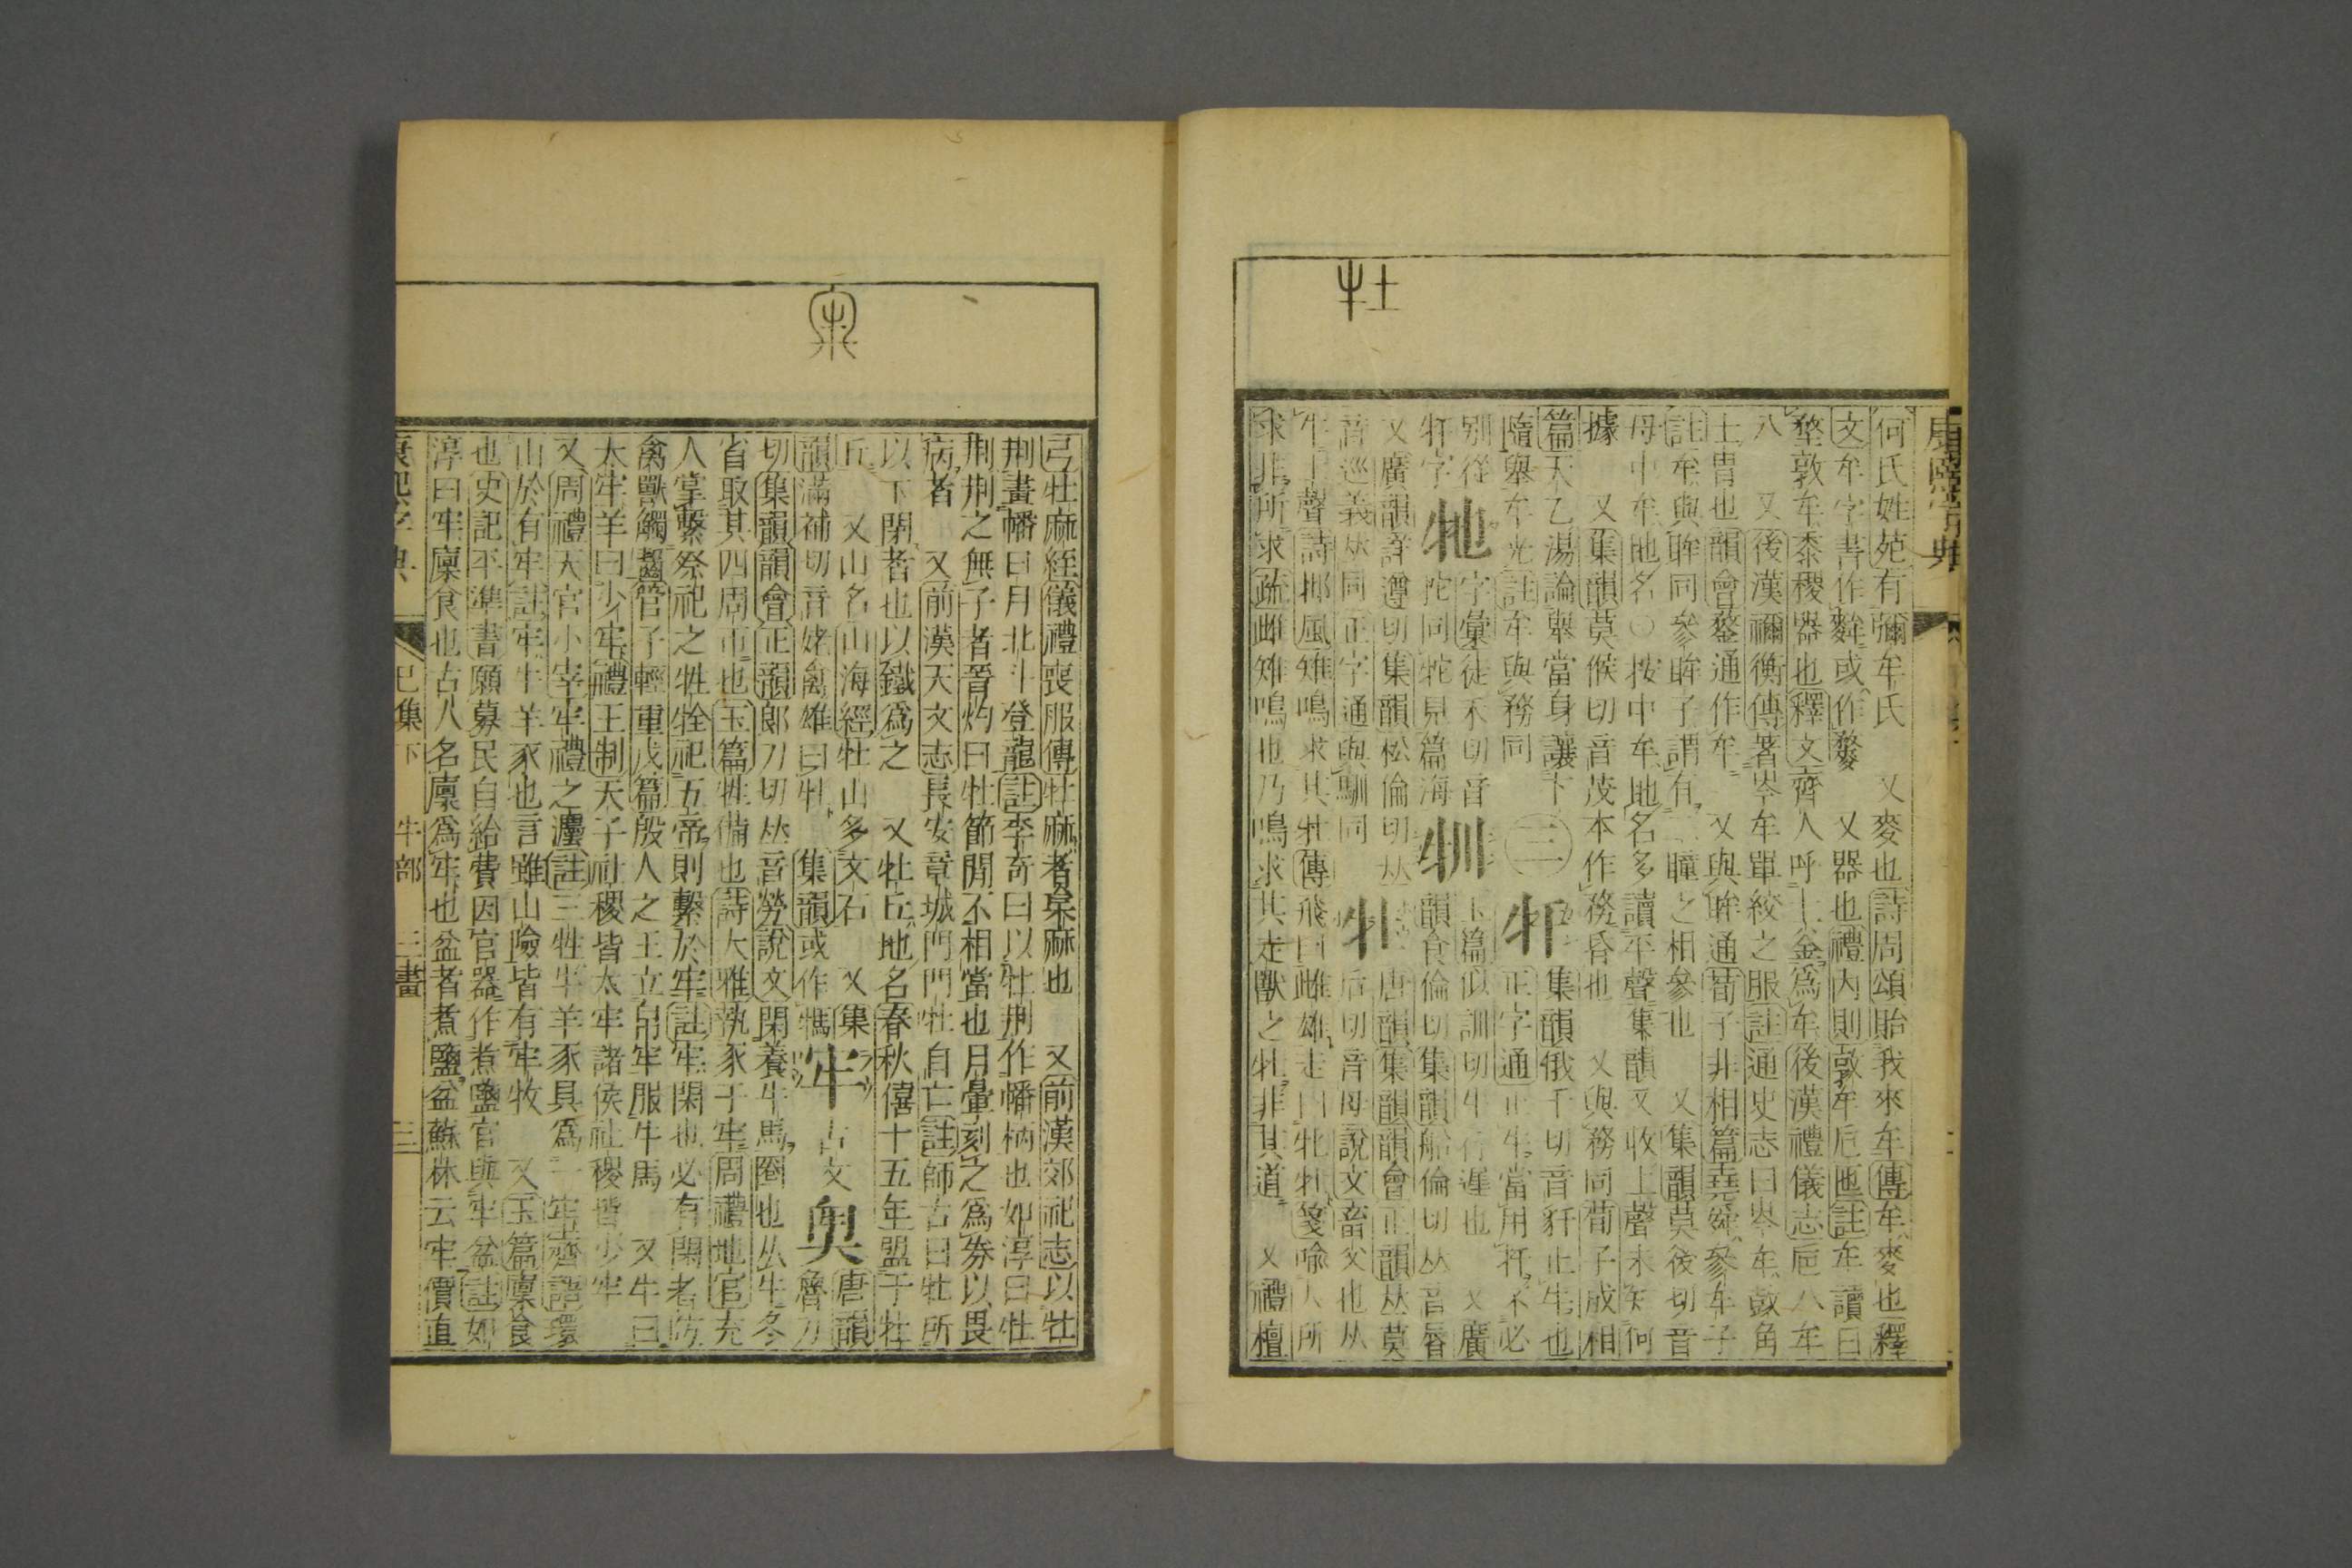 牡
康熙字典
何氏姓苑有彌牟氏 又麥也詩周頌貽我來牟傳牟麥也釋
文牟字書作麰或作𪍓 又器也禮內則敦牟卮匜註牟讀曰
堥敦牟黍稷器也釋文齊人呼土釜爲牟後漢禮儀志巵八牟
八 又後漢禰衡傳著岑牟單絞之服註通史志曰岑牟鼓角
士冑也韻會鍪通作牟 又與眸通荀子非相篇堯舜參牟子
註牟與眸同參眸子謂有二瞳之相參也 又集韻莫後切音
母中牟地名○按中牟地名多讀平聲集韻又收上聲未知何
據 又集韻莫候切音茂本作務昬也 又與務同荀子成相
篇天乙湯論舉當身讓卞
隨舉牟光註牟與務同
三
㸩
集韻俄干切音豻止牛也
正字通止牛當用扞不必
別從
㸩字
牠
字彙徒禾切音
陀同牠見篇海
㸪
玉篇似訓切牛行遲也 又廣
韻食倫切集韻船倫切𠀤音脣
又廣韻詳遵切集韻松倫切𠀤
音巡義𠀤同正字通與馴同
牡
唐韻集韻韻會正韻𠀤莫
后切音母說文畜父也从
牛土聲詩邶風雉鳴求其牡傳飛曰雌雄走曰牝牡箋喻人所
求非所求疏雌雉鳴也乃鳴求其走獸之牡非其道 又禮檀
牢
弓牡麻絰儀禮喪服傳牡麻者枲麻也 又前漢郊祀志以牡
荆畫幡日月北斗登龍註李奇曰以牡荆作幡柄也如淳曰牡
荆荆之無子者晉灼曰牡節閒不相當也月暈刻之爲券以畏
病者 又前漢天文志長安章城門門牡自亡註師古曰牡所
以下閉者也以鐵爲之 又牡丘地名春秋僖十五年盟于牡
丘 又山名山海經牡山多文石 又集
韻滿補切音姥禽雄曰牡 集韻或作
牢
古文
唐韻
魯刀
切集韻韻會正韻郎刀切𠀤音勞說文閑養牛馬圈也从牛冬
省取其四周帀也玉篇牲備也詩大雅執豕于牢周禮地官充
人掌繫祭祀之牲牷祀五帝則繫於牢註牢閑也必有閑者防
禽獸觸齧管子輕重戊篇殷人之王立帛牢服牛馬 又牛曰
太牢羊曰少牢禮王制天子社稷皆太牢諸侯社稷皆少牢
又周禮天官小宰牢禮之灋註三牲牛羊豕具爲一牢齊語環
山於有牢註牢牛羊豕也言雖山險皆有牢牧 又玉篇廩食
也史記平準書願募民自給費因官器作煮鹽官與牢盆註如
淳曰牢廩食也古人名廩爲牢也盆者煮鹽盆蘇林云牢價直
康熙字典 巳集下 牛部 三畫 三